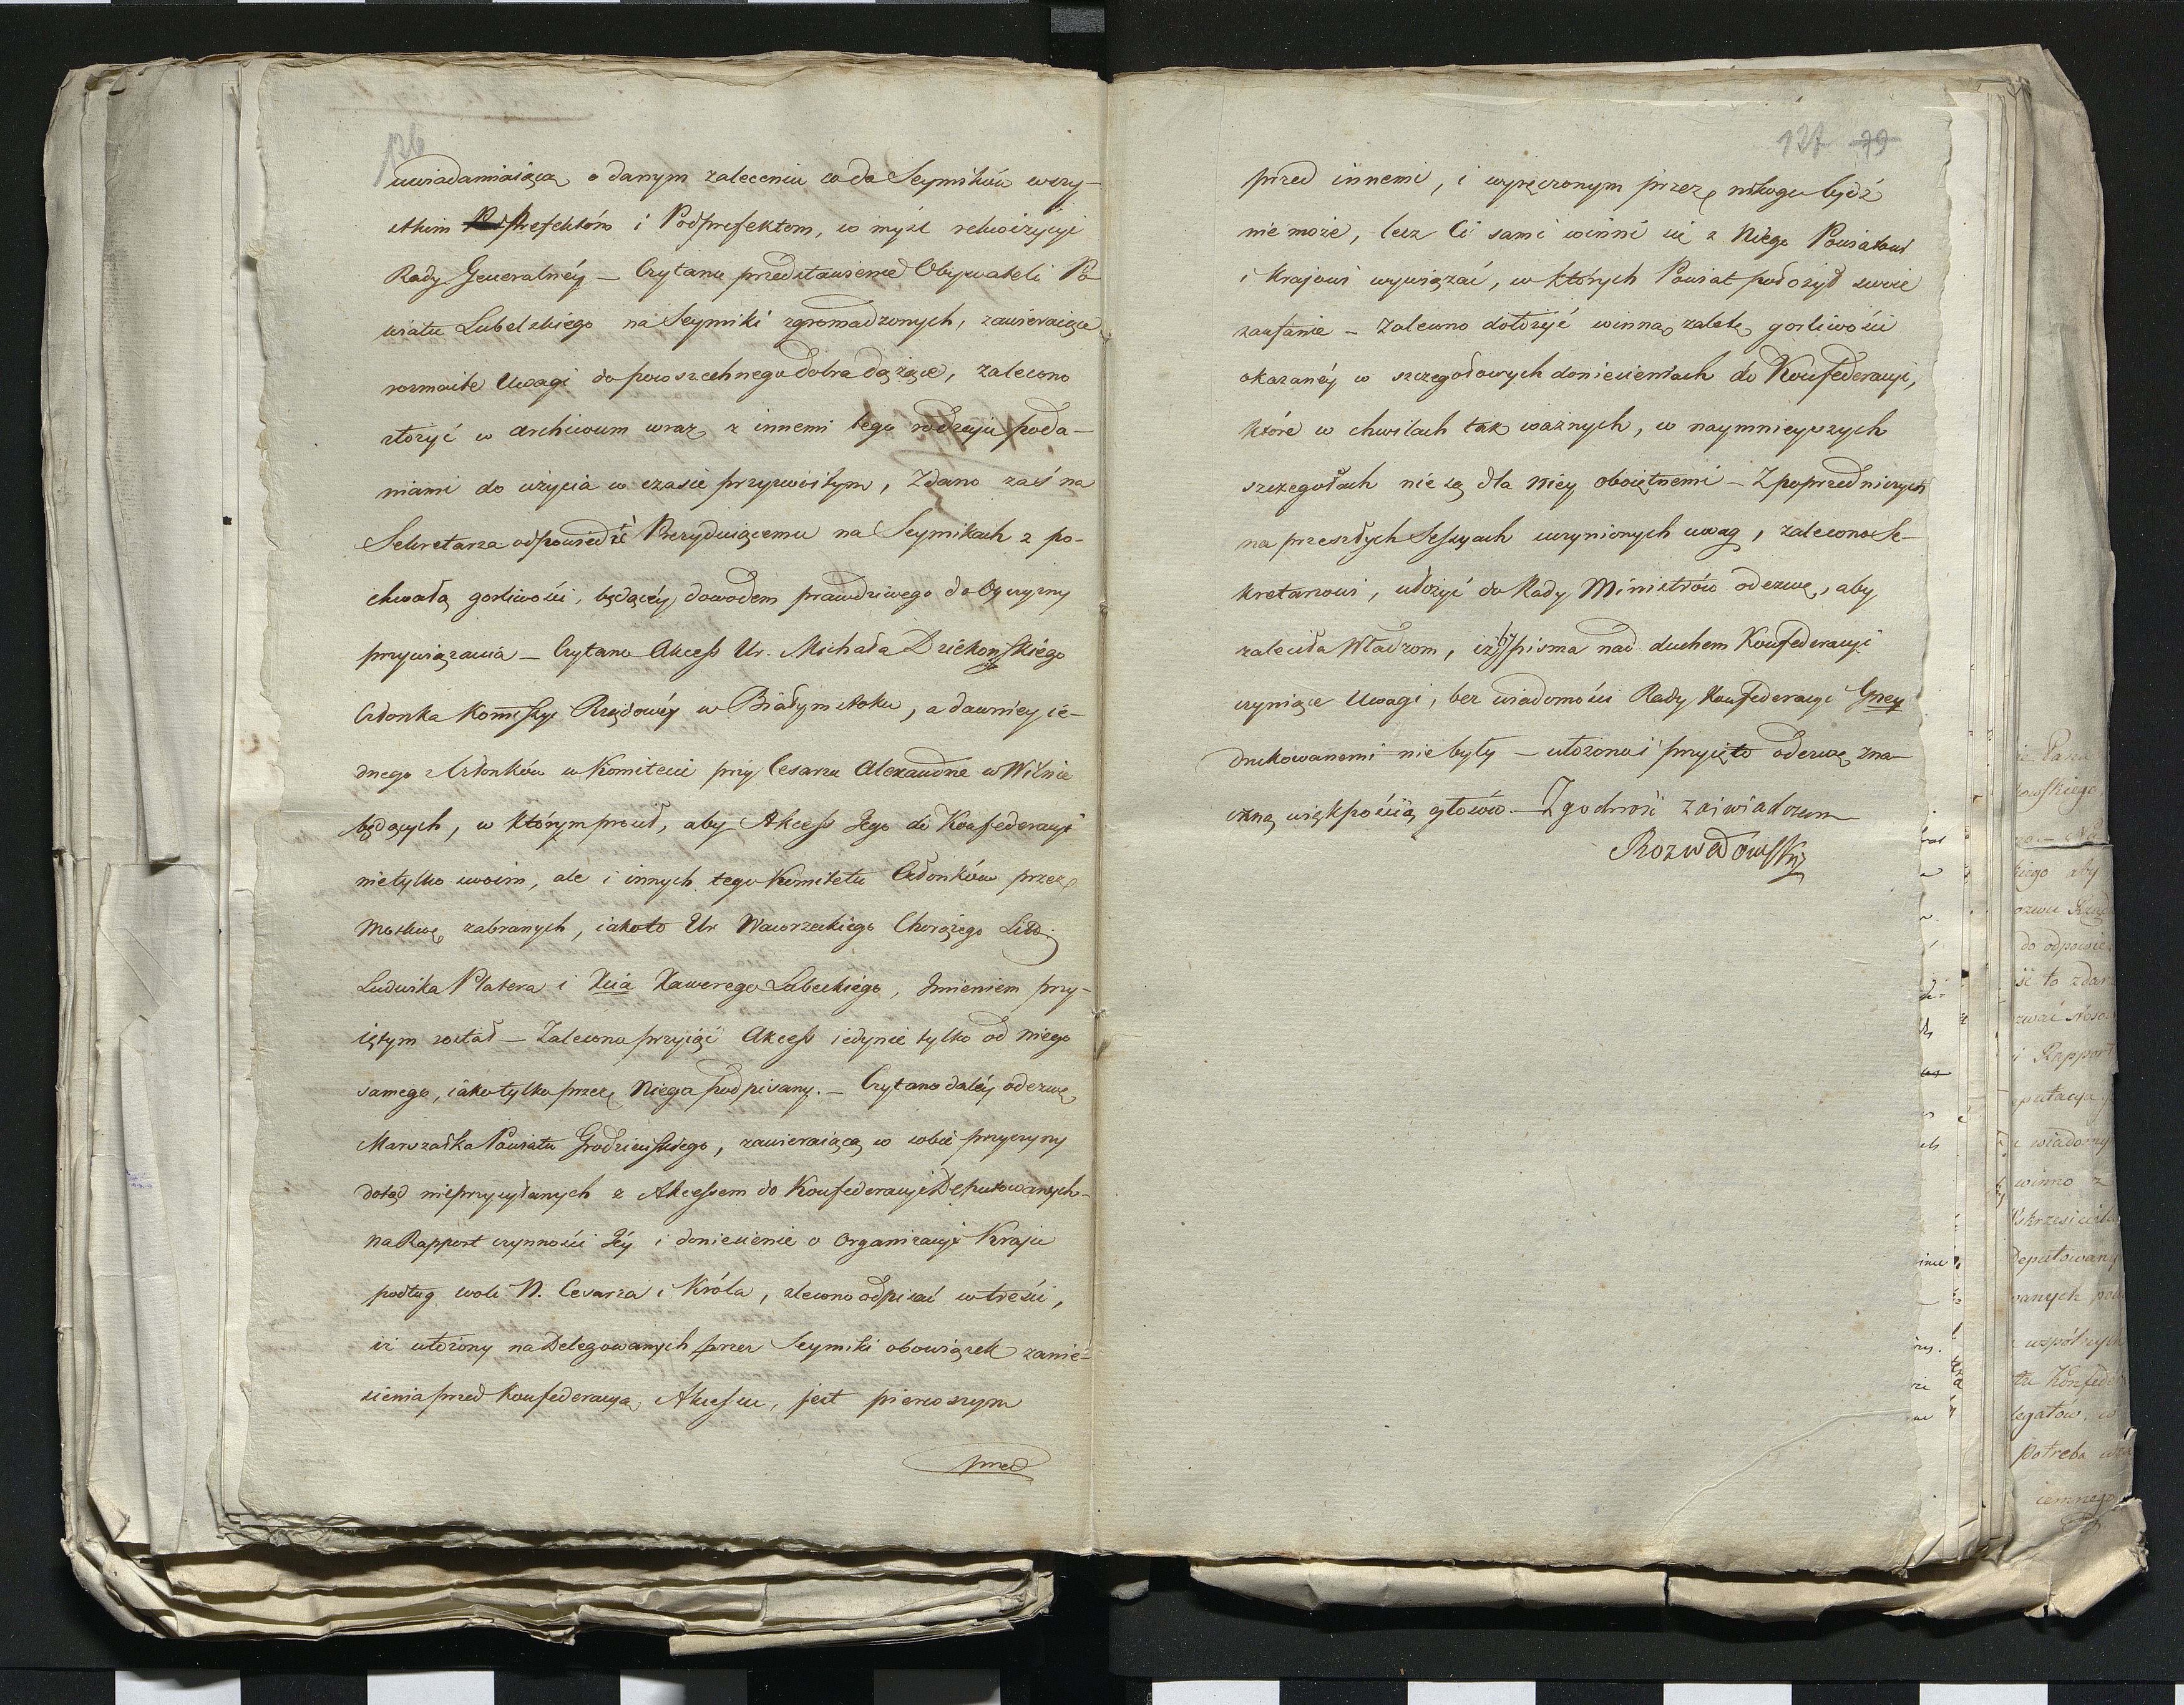 126
uwiadamiaiącą o danym zaleceniu co do Seymików wszy-
stkim Prefektóm i Podprefektom, w myśl rekwizycyi
Rady Generalnéy – Czytano przedstawienie Obywateli Po-
wiatu Lubelskiego na Seymiki zgromadzonych, zawieraiące
rozmaite Uwagi do powszechnego dobra dążące, zalecono
złożyć w archiwum wraz z innemi tego rodzaju poda-
niami do użycia w czasie przyzwoitym, Zdano zaś na
Sekretarza odpowiedź Prezyduiącemu na Seymikach z po-
chwałą gorliwości, będącéy dowodem prawdziwego do Oyczyzny
przywiązania – Czytano Akcess Ur. Michała Dziekońskiego
Członka Komissyi Rządowéy w Białymstoku, a dawniey ie-
dnego z Członków w Komitecie przy Cesarzu Alexandrze w Wilnie
będących, w którym prosił, aby Akcess Jego do Konfederacyi
nietylko swoim, ale i innych tego Komitetu Członków przez
Moskwę zabranych, iakoto Ur Wawrzeckiego Chorążego Litt:
Ludwika Platera i Xcia Xawerego Lubeckiego, Imieniem przy-
iętym został – Zalecono przyiąć Akcess iedynie tylko od niego
samego, iako tylko przez Niego podpisany. – Czytano daléy odezwę
Marszałka Powiatu Grodzieńskiego, zawieraiącą w sobie przyczyny
dotąd nieprzysyłanych z Akcessem do Konfederacyi Deputowanych –
na Rapport czynności Jéy i doniesienie o Organizacyi Kraju
podług woli N. Cesarza i Króla, zlecono odpisać w treści,
iż włożony na Delegowanych przez Seymiki obowiązek zanie-
sienia przed Konfederacyą Akcessu, jest pierwszym
przed
127 79
przed innemi, i wyręczonym przez nikogo bydź
nie może, lecz Ci sami winni się z Niego Powiatowi
i Krajowi wywiązać, w których Powiat położył swoie
zaufanie – Zalecono dołożyć winną zaletę gorliwości
okazanéy w szczegołowych doniesieniach do Konfederacyi,
które w chwilach tak ważnych, w naymnieyszych
szczegołach nie są dla Niey oboiętnemi – Z poprzedniczych
na przeszłych Sessyach uczynionych uwag, zalecono Se-
kretarzowi, ułożyć do Rady Ministrów odezwę, aby
zaleciła Władzom, iżby pisma nad duchem Konfederacyi
czyniące Uwagi, bez wiadomości Rady Konfederacyi Gney
drukowanemi nie były – ułożono i przyięto odezwę zna-
czną większością głosów – Zgodność zaświadczam
Rozwadowski